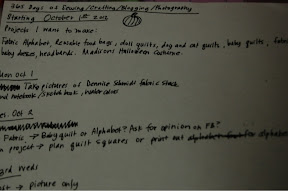 365 Days of Sewing/Crafting/Blogging/Photography
Starting October 1st 2012
Projects I want to make:
Fabric Alphabet, Reusable food bags, doll quilts, dog and cat quilts, baby quilts, fabric
baby dolls, headbands, Madisons Halloween Costume.
Mon Oct 1
Take pictures of Dennise Schmidt Fabric Stack
and notebook/sketch book, water colors
Tues. Oct 2
Fabric → Baby quilt or Alphabet? Ask for opinion on FB?
project → plan quilt squares or print out alphabet
3rd Weds
→ picture only